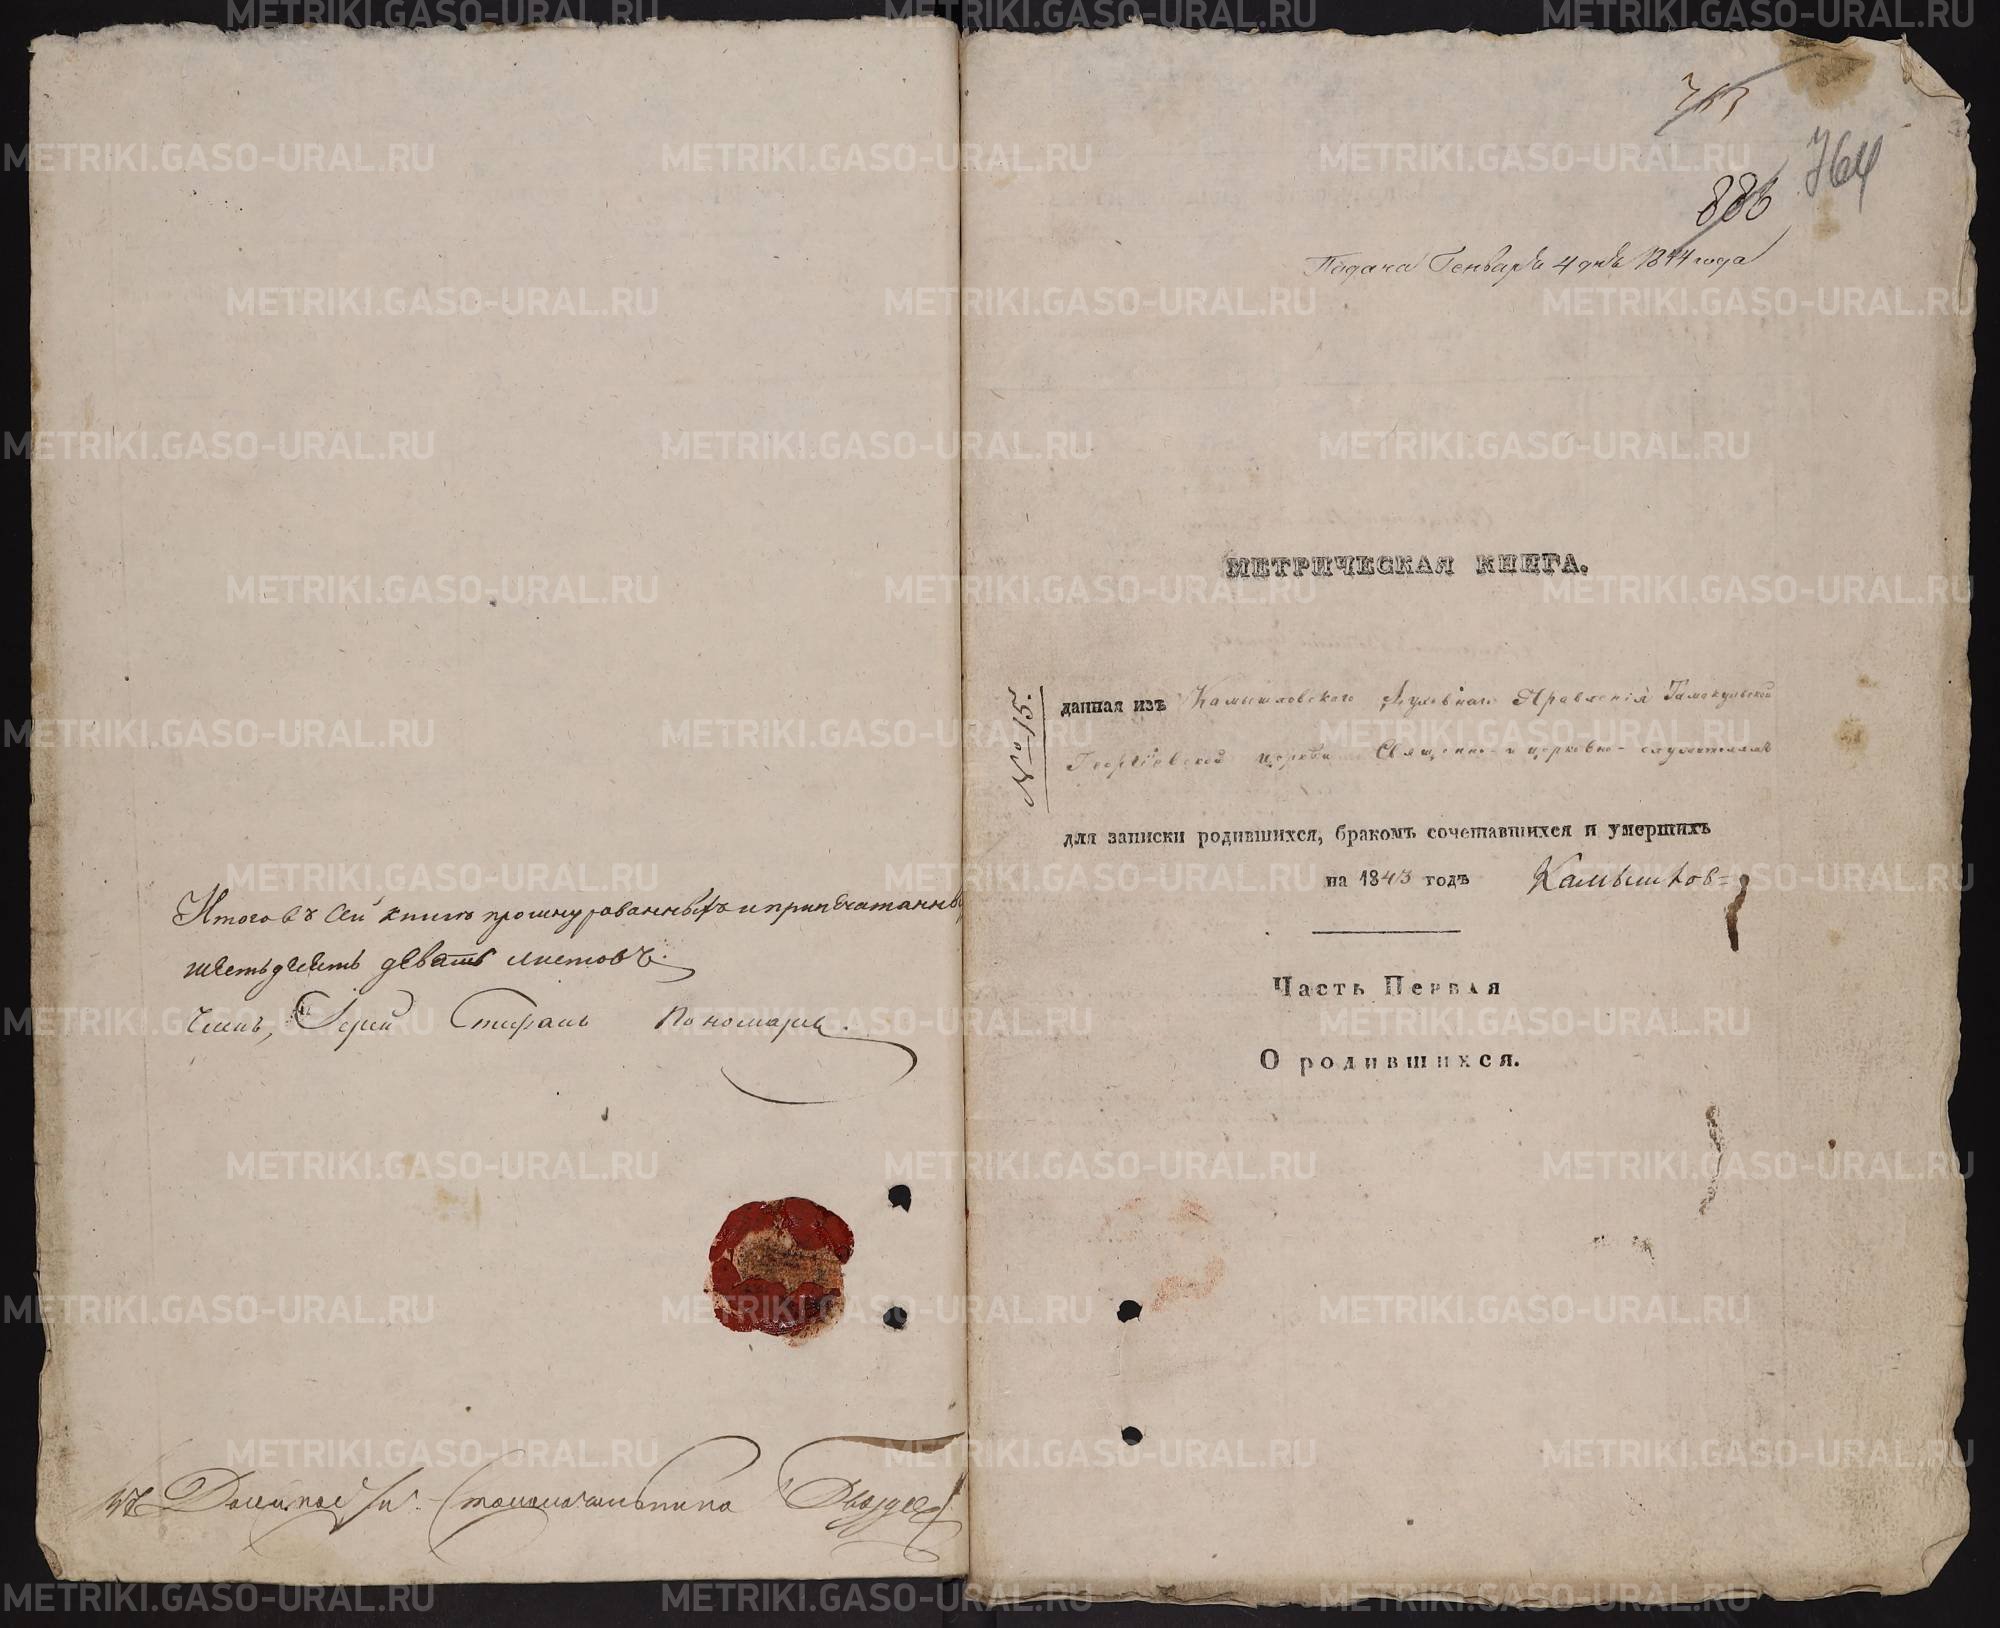 Итого въ сей книгѣ прошнурованныхъ и припечатанны
шестьдесятъ девять листовъ.
Членъ, Іерей Стефанъ Пономаревъ.
Столоначальника
764
883
Подана Генваря 4 дня 1844 года
МЕТРИЧЕСКАЯ КНИГА.
№ 15.
данная изъ Камышловского Духовнаго Правленія Тамакульской
Георгіевской церкви Священно- и церковно-служителямъ
для записки родившихся, бракомъ сочетавшихся и умершихъ
на 1843 годъ Камышлов=
Часть Первая
О родившихся.
METRIKI.GASO-URAL.RU